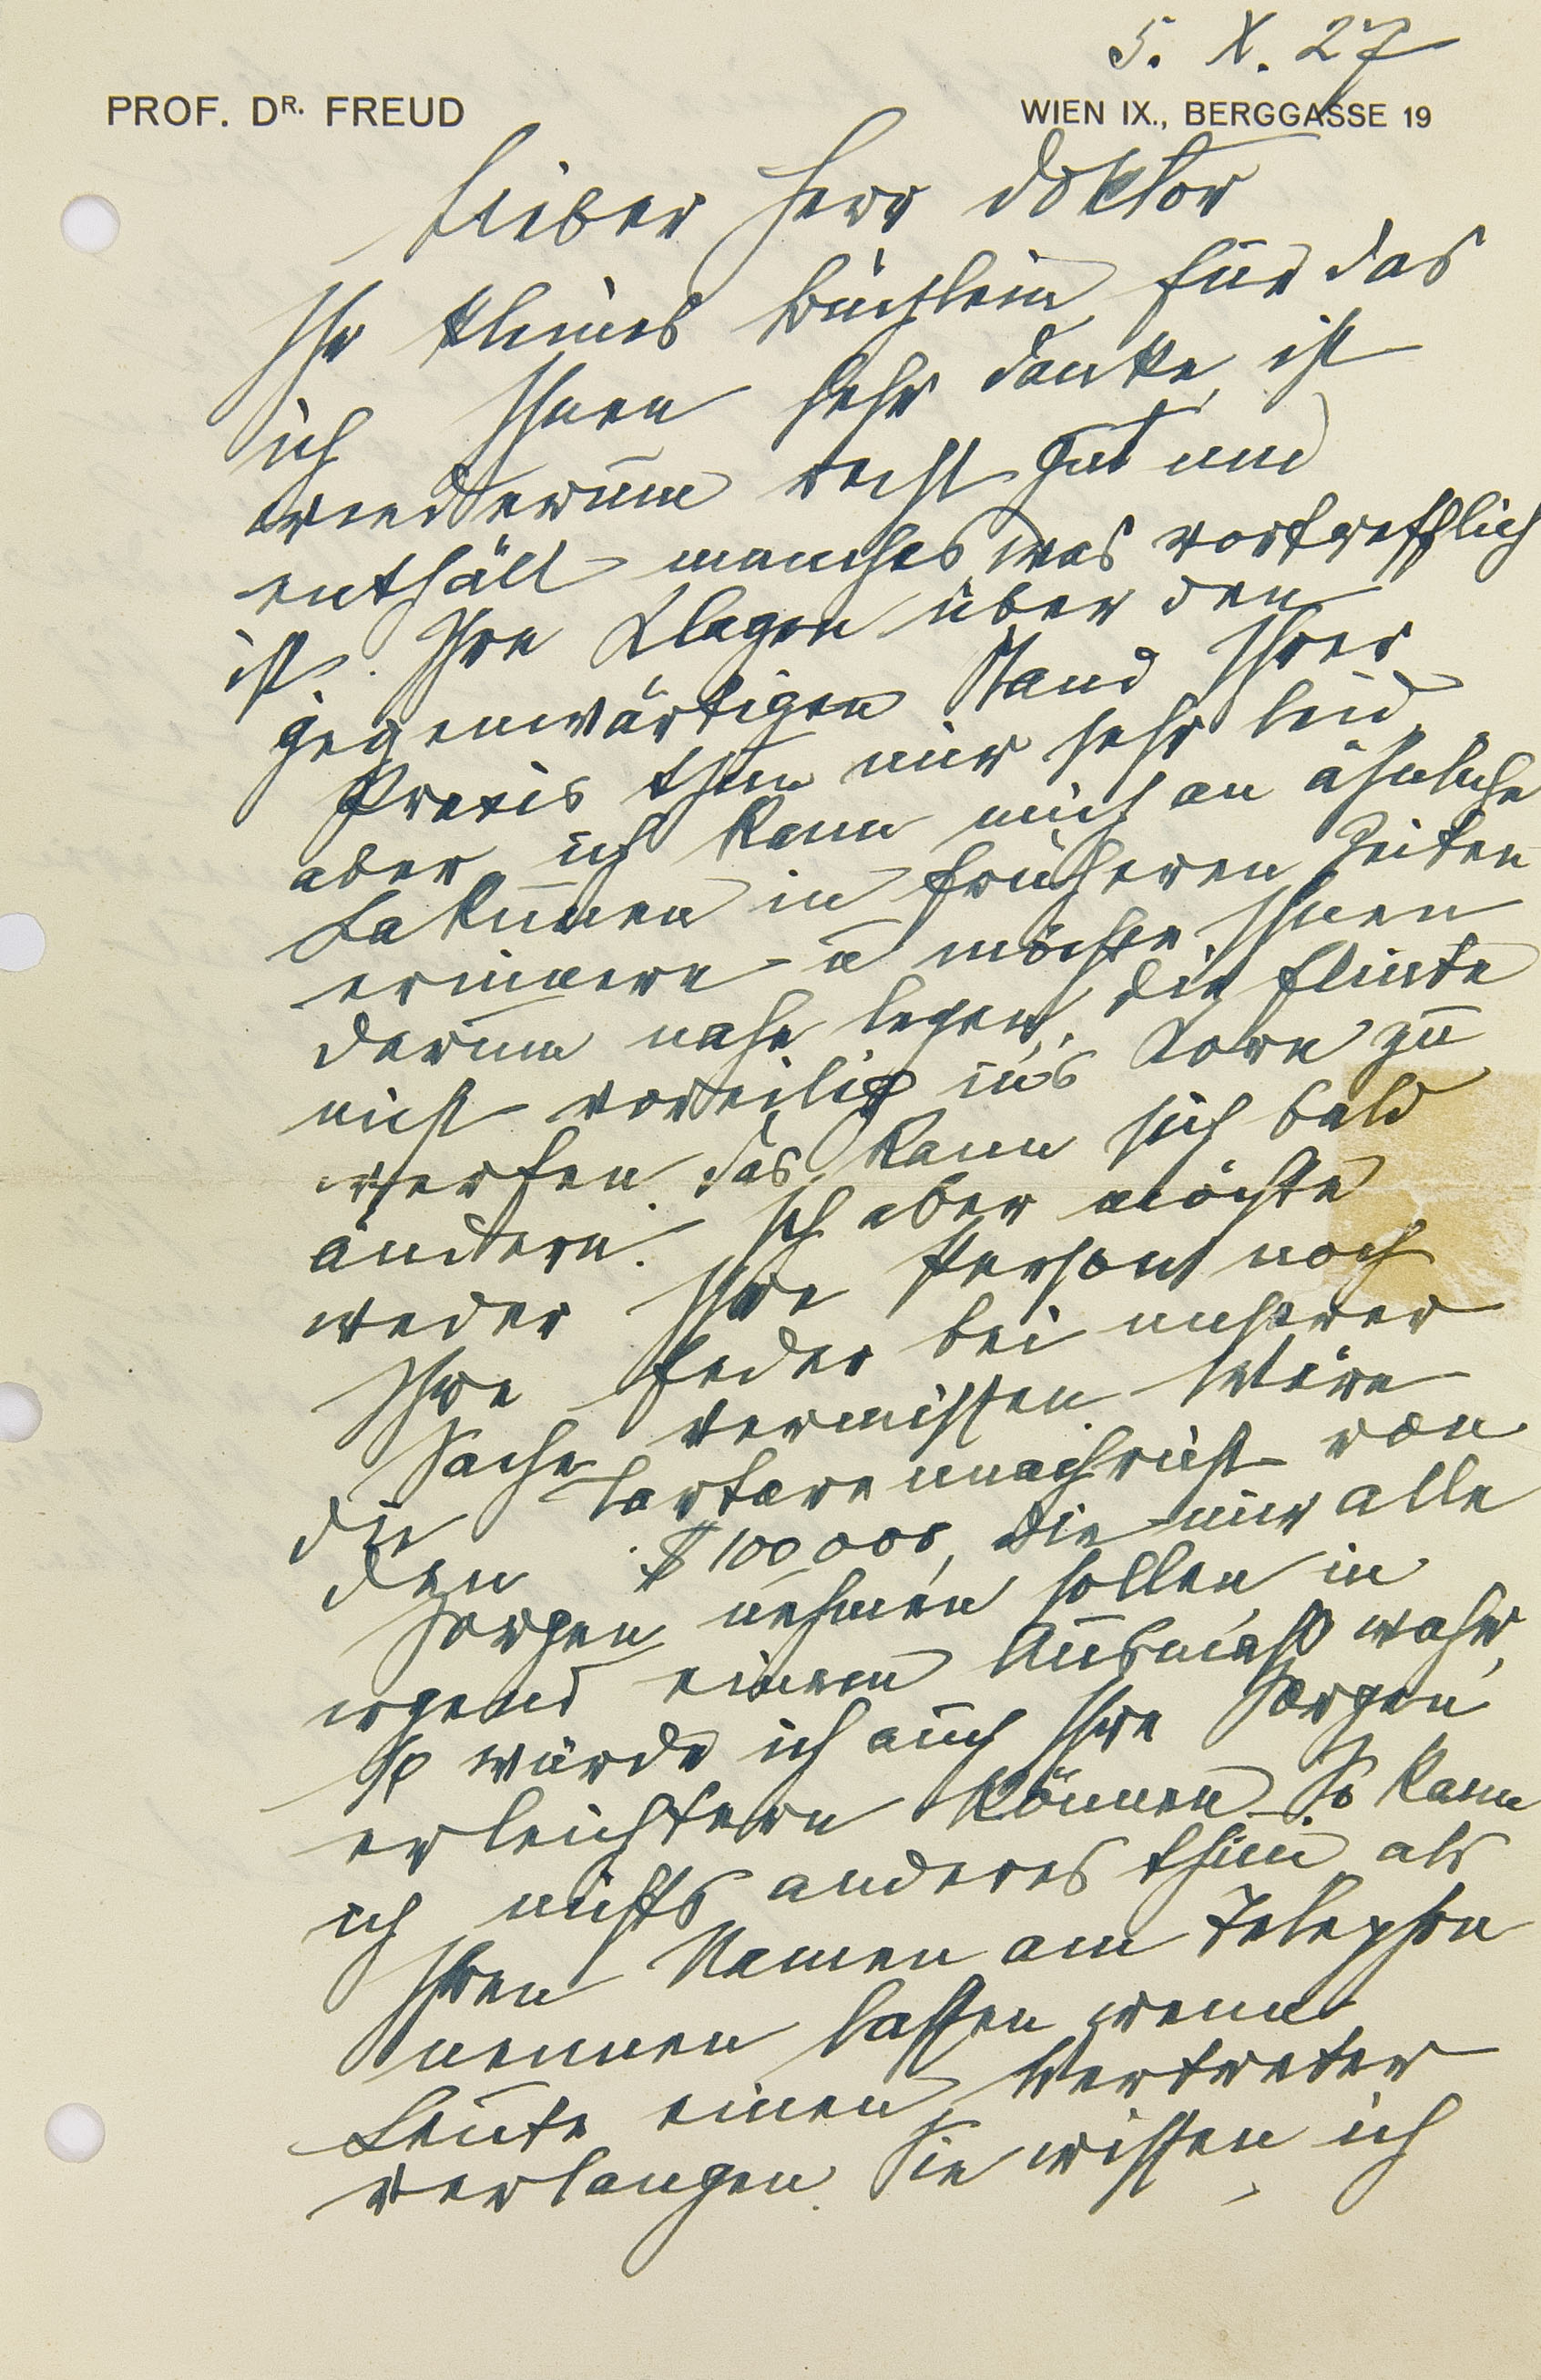 5. X. 27
PROF. DR. FREUD
WIEN IX., BERGGASSE 19
Lieber Herr Doktor
Ihr kleines Büchlein, für das
ich Ihnen sehr danke, ist
wiederum recht gut und
enthält manches was vortrefflich
ist. Ihre Klagen über den
gegenwärtigen Stand Ihrer
Praxis thun mir sehr leid,
aber ich kann mich an ähnliche
Lakunen in früheren Zeiten
erinnern u möchte Ihnen
darum nahe legen, die Flinte
nicht voreilig in's Korn zu
werfen. Das kann sich bald
ändern. Ich aber möchte
weder Ihre Person noch
Ihre Feder bei unserer
Sache vermissen. Wäre
die Tartarennachricht von
den $ 100 000, die mir alle
Sorgen nehmen sollen, in
irgend einem Ausmaß wahr,
so würde ich auch Ihre Sorgen
erleichtern können. So kann
ich nichts anderes thun als
Ihren Namen am Telephon
nennen lassen, wenn
Leute einen Vertreter
verlangen. Sie wissen, ich